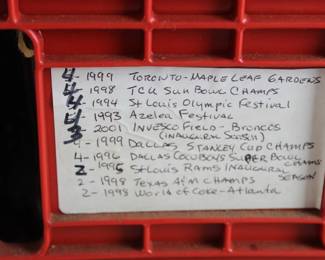 4 - 1999 TORONTO - MAPLE LEAF GARDENS
4 - 1998 TCU SUN BOWL CHAMPS
4 - 1994 St Louis Olympic Festival
4 - 1993 Azelea Festival
3 2001 INVESCO FIELD - BRONCOS
(INAUGURAL SEASON)
- 1999 DALLAS STANLEY CUP CHAMPS
4 - 1996 DALLAS COWBOYS SUPER BOWL CHAMPS
2 - 1995 St Louis RAMS INAUGURAL SEASON
2 - 1998 TEXAS A&M CHAMPS
2 - 1998 World of Coke - Atlanta